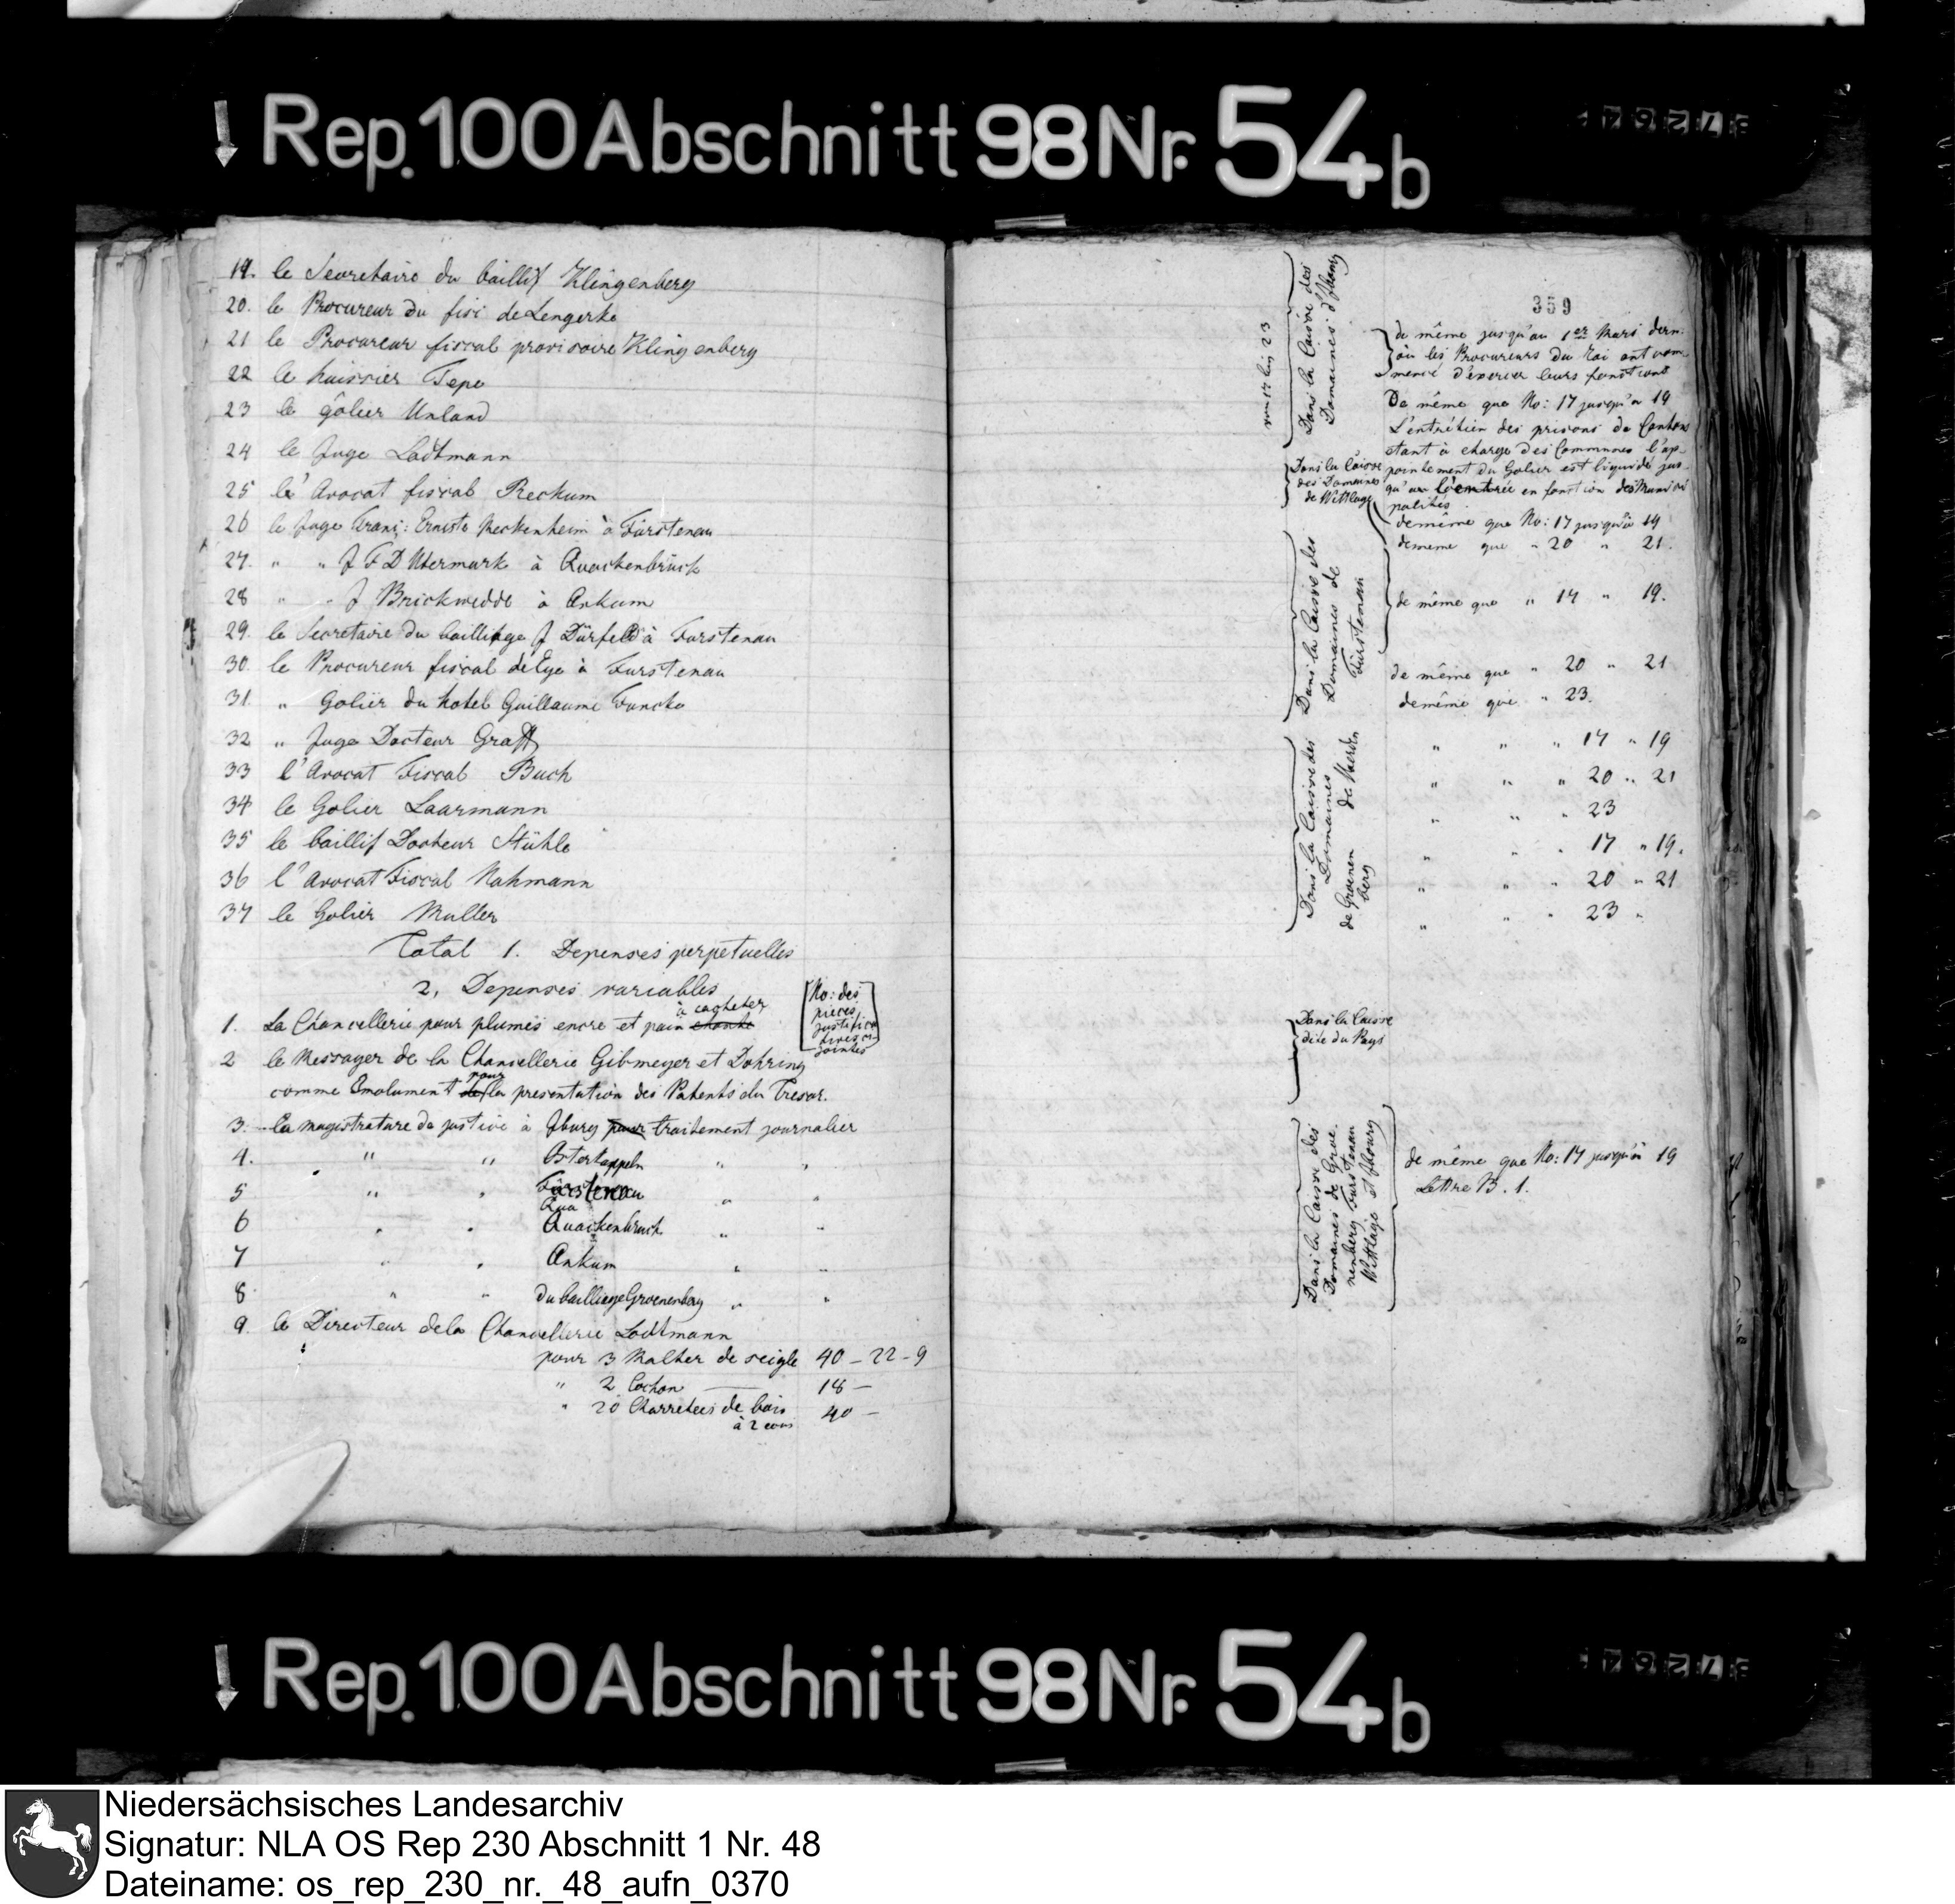 Rep. 100 Abschnitt 98 Nr. 54b
19. le Secretaire du baillif Klingenberg
20. le Procureur du fisc de Lengerke
21 le Procureur fiscal provisoire Klingenberg
22 le huissier Tepe
23 le gôlier Unland
24 le Juge Lodtmann
25 le' Avocat fiscal Reckum
26 le Juge Franç: Erneste Meckenheim à Fürstenau
27. " " J F D Utermark à Quackenbrück
28 " " J Brickwedde à Ankum
29. le Secretaire du bailliage J Dürfeld à Furstenau
30. le Procureur fiscal de Eye à Furstenau
31. " Golier du hotel Guillaume Funcke
32 " Juge Docteur Graff
33 l'Avocat Fiscal Buch
34 le Golier Laarmann
35 le baillif Docteur Stühle
36 l'Avocat Fiscal Nahmann
37 le Golier Muller
Total 1. Depenses perpetuelles
2, Depenses variables
No: des
pieces
justifica
tives ci-
jointes
à cacheter
1. La Chancellerie pour plumes encre et pain
2 le Messager de la Chancellerie Gibmeyer et Dohring
pour
comme Emolument de la presentation des Patents du Tresor.
3. La magistrature de justice à Jburg pour traitement journalier
4. " " Ostercappeln " "
5 " " Fürstenau " "
Qua
6 " " Quackenbruck " "
7 " " Ankum " "
8 " " du bailliage Groenenberg " "
9. le Directeur de la Chancellerie Lodtmann
pour 3 Malter de seigle 40 - 22 - 9
" 2 Cochon 18 -
" 20 Charretees de bois 40 -
à 2 ecus
359
Dans la Caisse des
Domaines d'Jbourg
de même jusqu'au 1er Mars dern.
où les Procureurs du Roi ont com
mencé d'exercer leurs fonctions
De même que No: 17 jusqu'a 19
L'entretien des prisons de Cantons
etant à charge des Communes l'ap-
pointement du Golier est liquidé jus
qu'au l'entrée en fonction des Munici
palités.
Dans la Caisse
des Domaines
de Wittlage
de même que No: 17 jusqu'à 19
de meme que " 20 " 21.
Dans la Caisse des
Domaines de
Fürstenau
de même que " 17 " 19.
de même que " 20 " 21
de même que " 23.
Dans la Caisse des
Domaines
" " " 17 " 19
" " " 20 " 21
" " " 23
de Groenen
berg
" " " 17 " 19.
" " " 20 " 21
" " " 23 "
Dans la Caisse
dite du Pays
Dans la Caisse des
Domaines de Groe
nenberg Furstenau
Wittlage et Jbourg
de même que No: 17 jusqu'à 19
Lettre B. 1.
Rep. 100 Abschnitt 98 Nr. 54b
Niedersächsisches Landesarchiv
Signatur: NLA OS Rep 230 Abschnitt 1 Nr. 48
Dateiname: os_rep_230_nr._48_aufn_0370